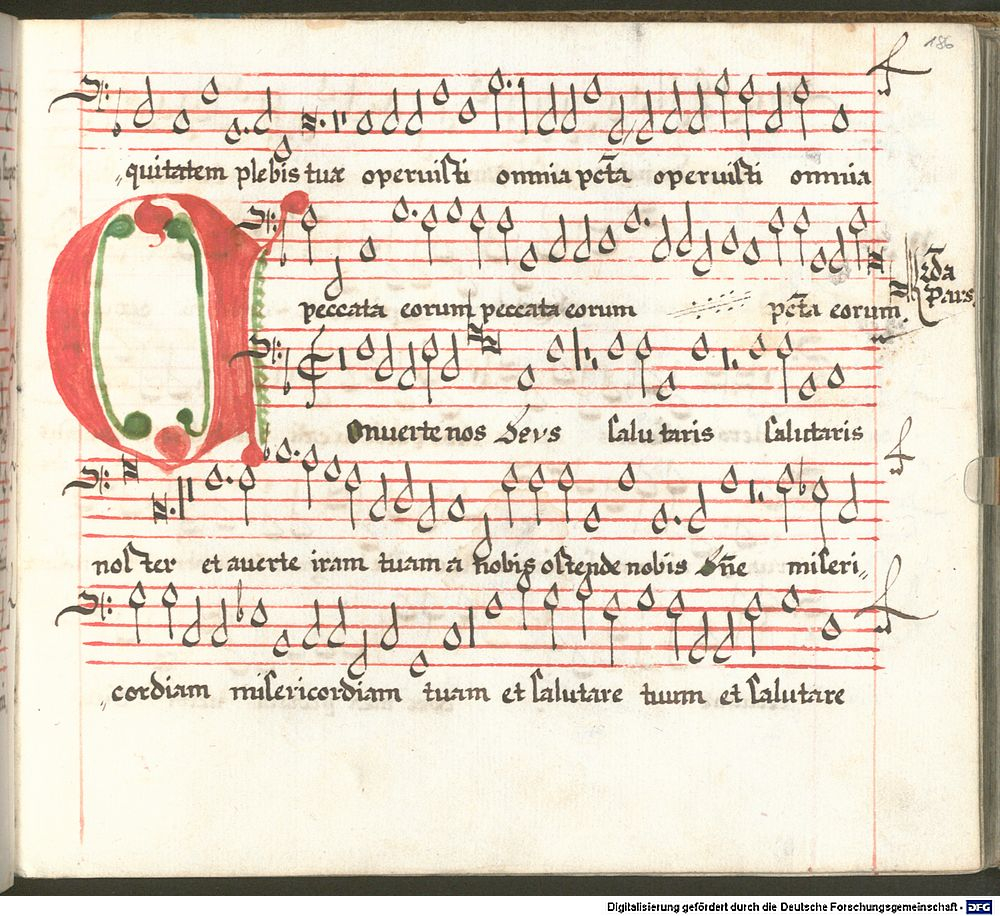 186
„quitatem plebis tuæ operuisti omnia pctā operuisti omnia
peccata eorum peccata eorum pctā eorum.
2da
Pars
Onuerte nos Deus salutaris salutaris
noster et auerte iram tuam a nobis ostende nobis Dñe miseri„
„cordiam misericordiam tuam et salutare tuum et salutare
Digitalisierung gefördert durch die Deutsche Forschungsgemeinschaft - DFG